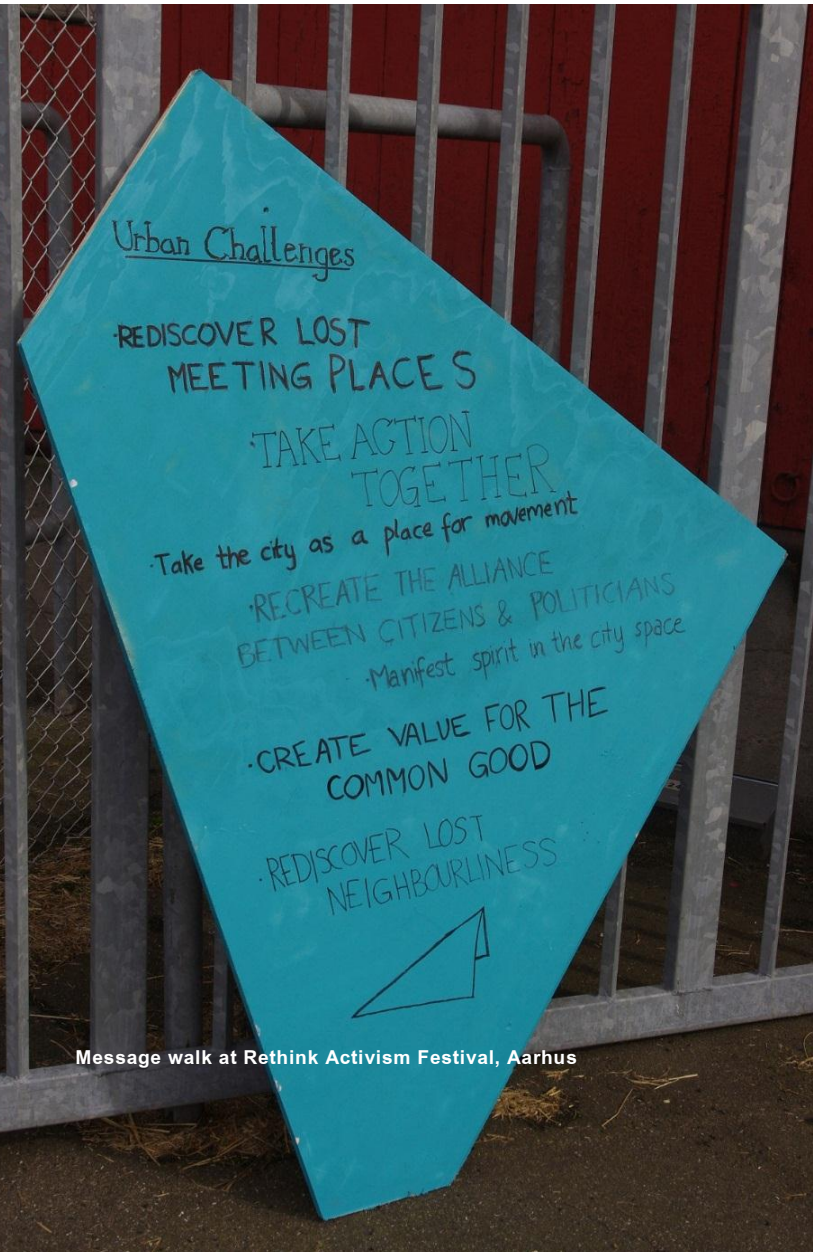 Urban Challenges
·REDISCOVER LOST
MEETING PLACES
·TAKE ACTION
TOGETHER
·Take the city as a place for movement
·RECREATE THE ALLIANCE
BETWEEN CITIZENS & POLITICIANS
·Manifest spirit in the city space
·CREATE VALUE FOR THE
COMMON GOOD
·REDISCOVER LOST
NEIGHBOURLINESS
Message walk at Rethink Activism Festival, Aarhus